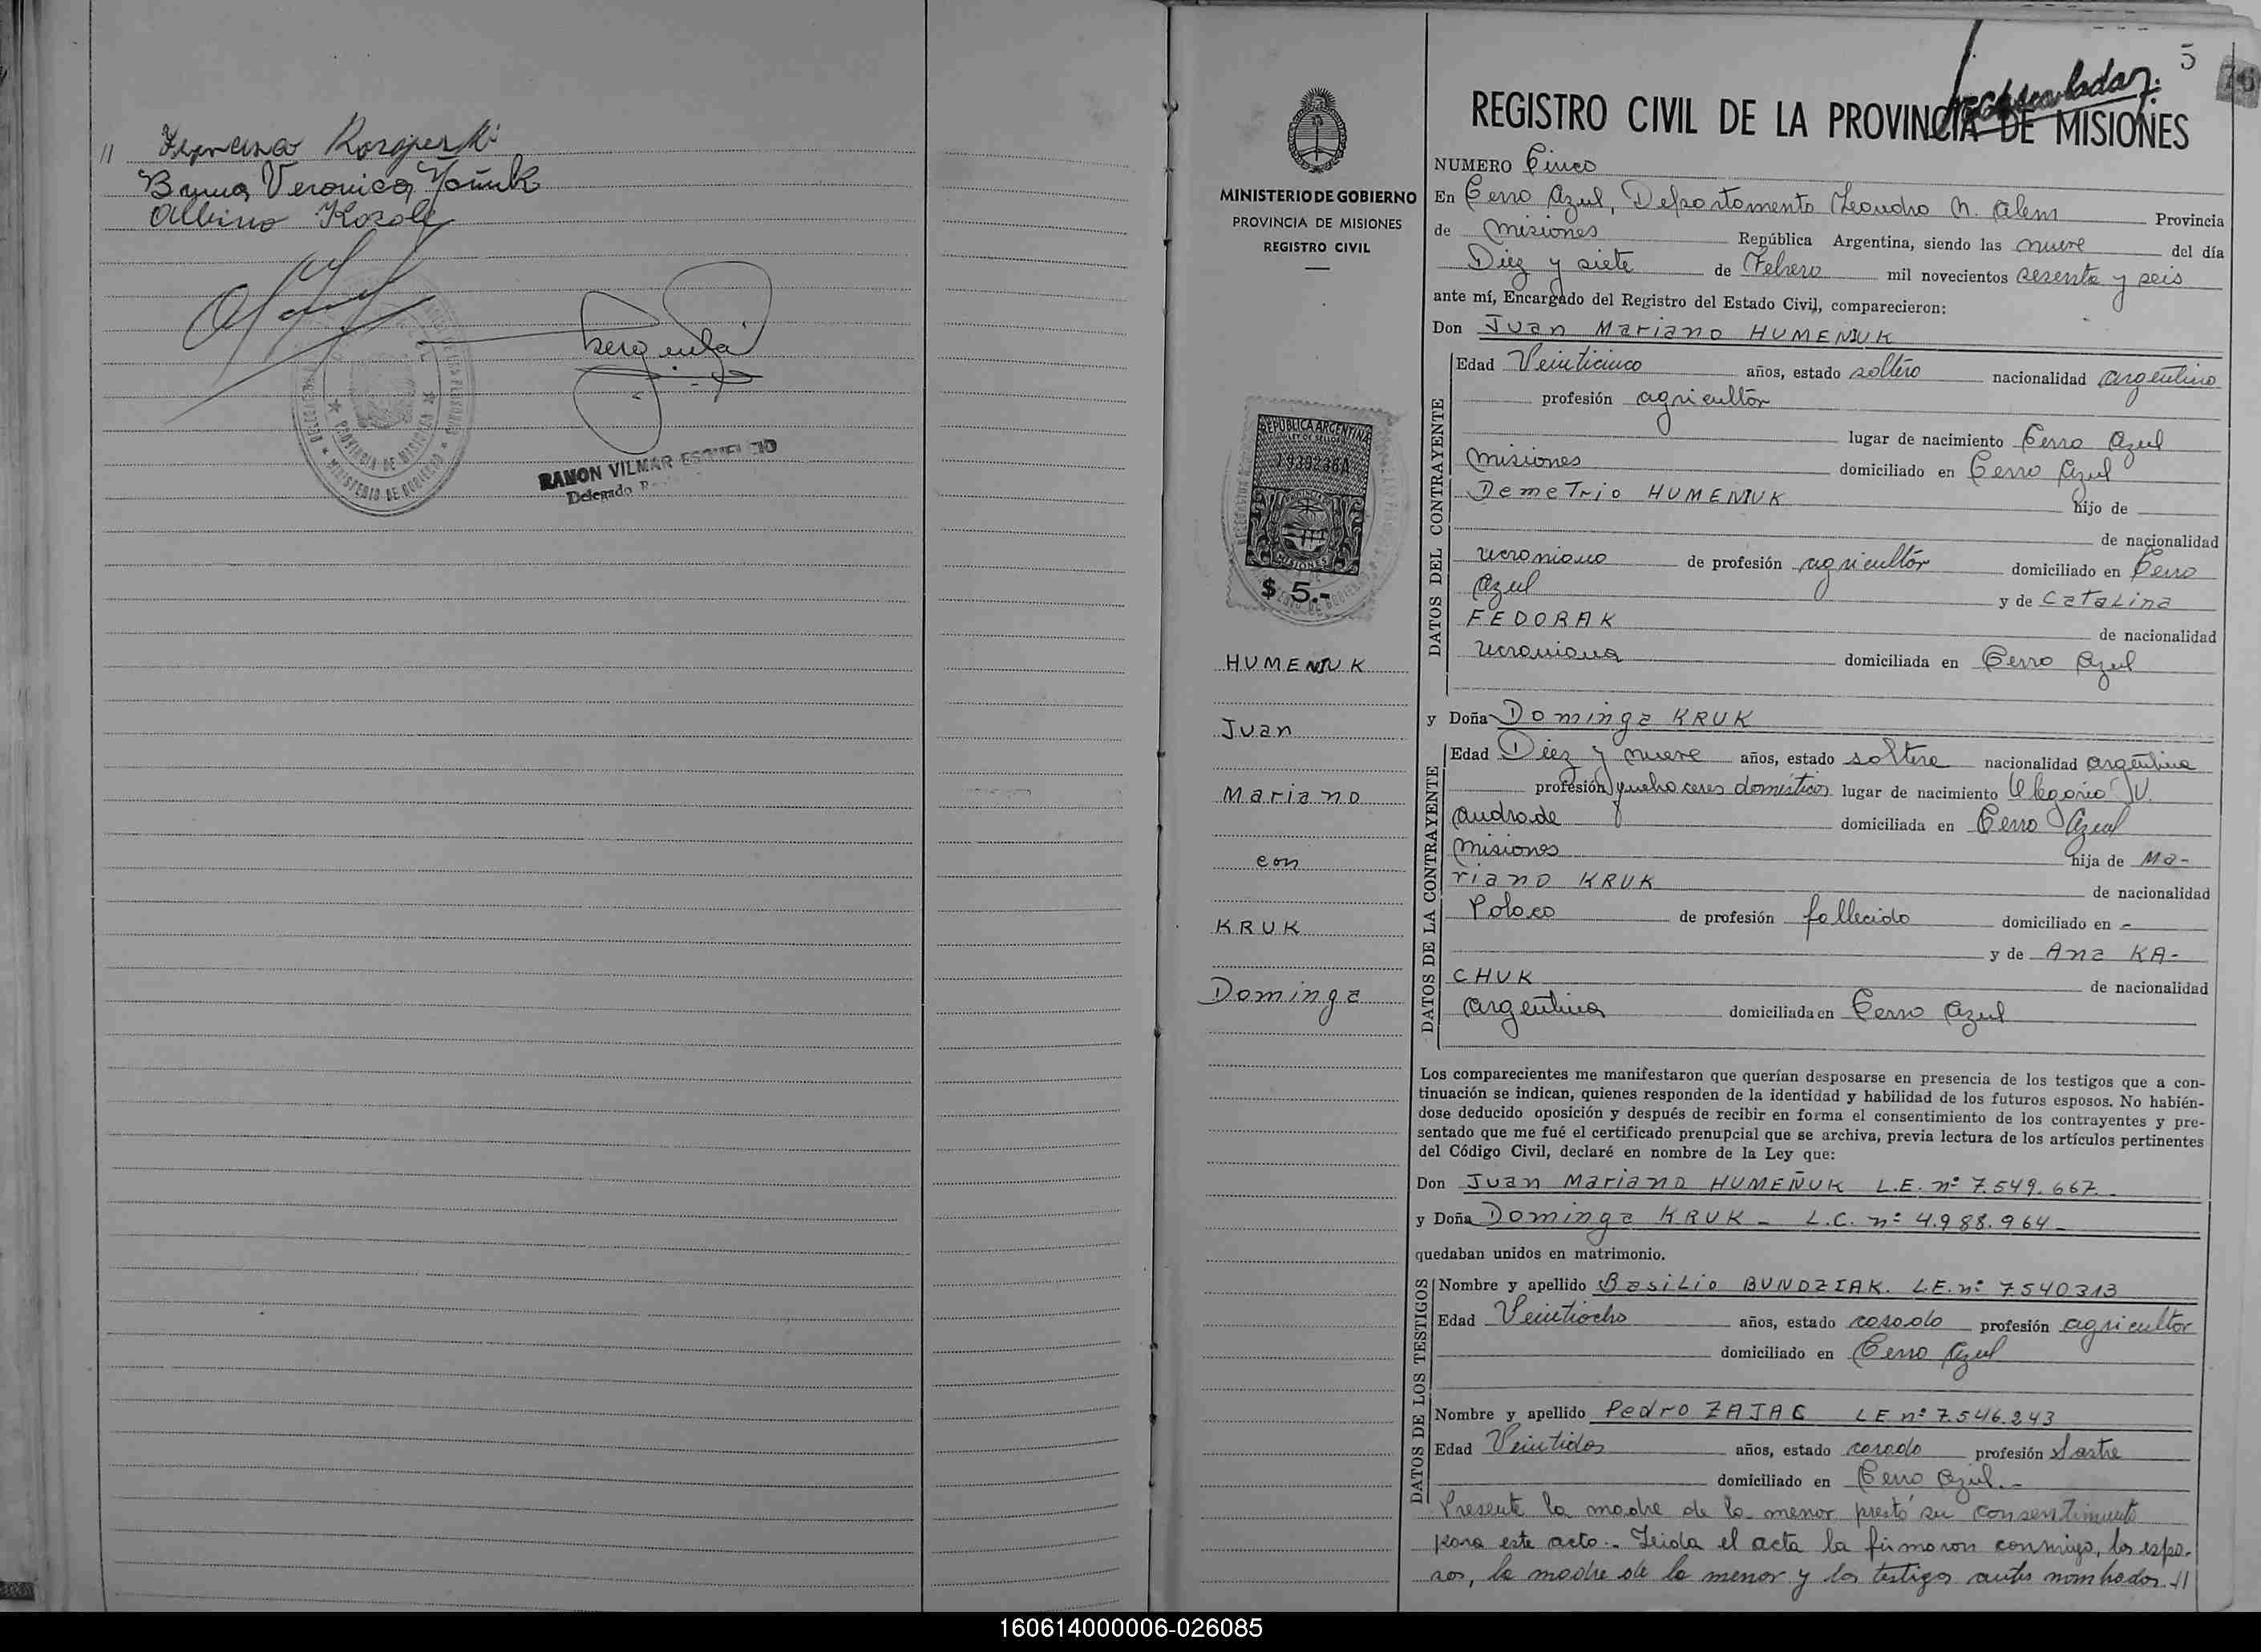 // Kosperski
Bruna Veronica
Albino Kozole
PROVINCIA DE MISIONES
MINISTERIO DE GOBIERNO
RAMON VILMAR
Delegado
5
76
REGISTRO CIVIL DE LA PROVINCIA DE MISIONES
MINISTERIO DE GOBIERNO
PROVINCIA DE MISIONES
REGISTRO CIVIL
REPUBLICA ARGENTINA
LEY DE SELLOS
MISIONES
$ 5.-
HUMENIUK
Juan
Mariano
con
KRUK
Dominga
NUMERO Cinco
En Cerro Azul, Departamento Leandro N. Alem Provincia
de Misiones República Argentina, siendo las nueve del día
Diez y siete de Febrero mil novecientos sesenta y seis
ante mí, Encargado del Registro del Estado Civil, comparecieron:
Don Juan Mariano HUMENIUK
DATOS DEL CONTRAYENTE
Edad Veinticinco años, estado soltero nacionalidad argentino
profesión agricultor
lugar de nacimiento Cerro Azul
Misiones domiciliado en Cerro Azul
Demetrio HUMENIUK hijo de
de nacionalidad
ucraniano de profesión agricultor domiciliado en Cerro
Azul y de Catalina
FEDORAK de nacionalidad
ucraniana domiciliada en Cerro Azul
y Doña Dominga KRUK
DATOS DE LA CONTRAYENTE
Edad Diez y nueve años, estado soltera nacionalidad argentina
profesión quehaceres domésticos lugar de nacimiento Olegario V.
Andrade domiciliada en Cerro Azul
Misiones hija de Ma-
riano KRUK de nacionalidad
Polaco de profesión fallecido domiciliado en -
y de Ana KA-
CHUK de nacionalidad
argentina domiciliada en Cerro Azul
Los comparecientes me manifestaron que querían desposarse en presencia de los testigos que a con-
tinuación se indican, quienes responden de la identidad y habilidad de los futuros esposos. No habién-
dose deducido oposición y después de recibir en forma el consentimiento de los contrayentes y pre-
sentado que me fué el certificado prenupcial que se archiva, previa lectura de los artículos pertinentes
del Código Civil, declaré en nombre de la Ley que:
Don Juan Mariano HUMEÑUK L.E. nº 7.549.667.-
y Doña Dominga KRUK - L.C. nº 4.988.964-
quedaban unidos en matrimonio.
DATOS DE LOS TESTIGOS
Nombre y apellido Basilio BUNDZIAK. L.E. nº 7540313
Edad Veintiocho años, estado casado profesión agricultor
domiciliado en Cerro Azul
Nombre y apellido Pedro ZAJAC L E nº 7.546.243
Edad Veintidos años, estado casado profesión Sastre
domiciliado en Cerro Azul.-
Presente la madre de la menor prestó su consentimiento
para este acto.- Leida el acta la firmaron conmigo, los espo-
sos, la madre de la menor y los testigos antes nombrados. //
160614000006-026085